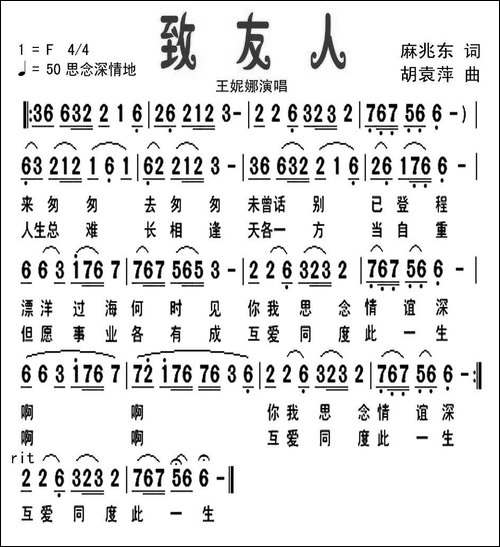 致友人
1 = F 4/4
♩= 50 思念深情地
麻兆东 词
胡袁萍 曲
王妮娜演唱
‖: 36 632 2 1 6 | 26 212 3 - | 2 2 6 323 2 | 767 56 6 - ) |
63 212 1 6 1 | 62 212 3 - | 36 632 2 1 6 | 26 176 6 - |
来 匆 匆 去 匆 匆 未曾话 别 已 登 程
人生总 难 长 相 逢 天各一 方 当 自 重
6 6 3 176 7 | 767 565 3 - | 2 2 6 323 2 | 767 56 6 - |
漂 洋 过 海 何 时 见 你 我 思 念 情 谊 深
但 愿 事 业 各 有 成 互 爱 同 度 此 一 生
6 6 3 176 7 | 72 176 767 3 6 | 2 2 6 323 2 | 767 56 6 - :‖
啊 啊 你 我 思 念 情 谊 深
啊 啊 互 爱 同 度 此 一 生
rit
2 2 6 323 2 | 767 56 6 - ‖
互 爱 同 度 此 一 生